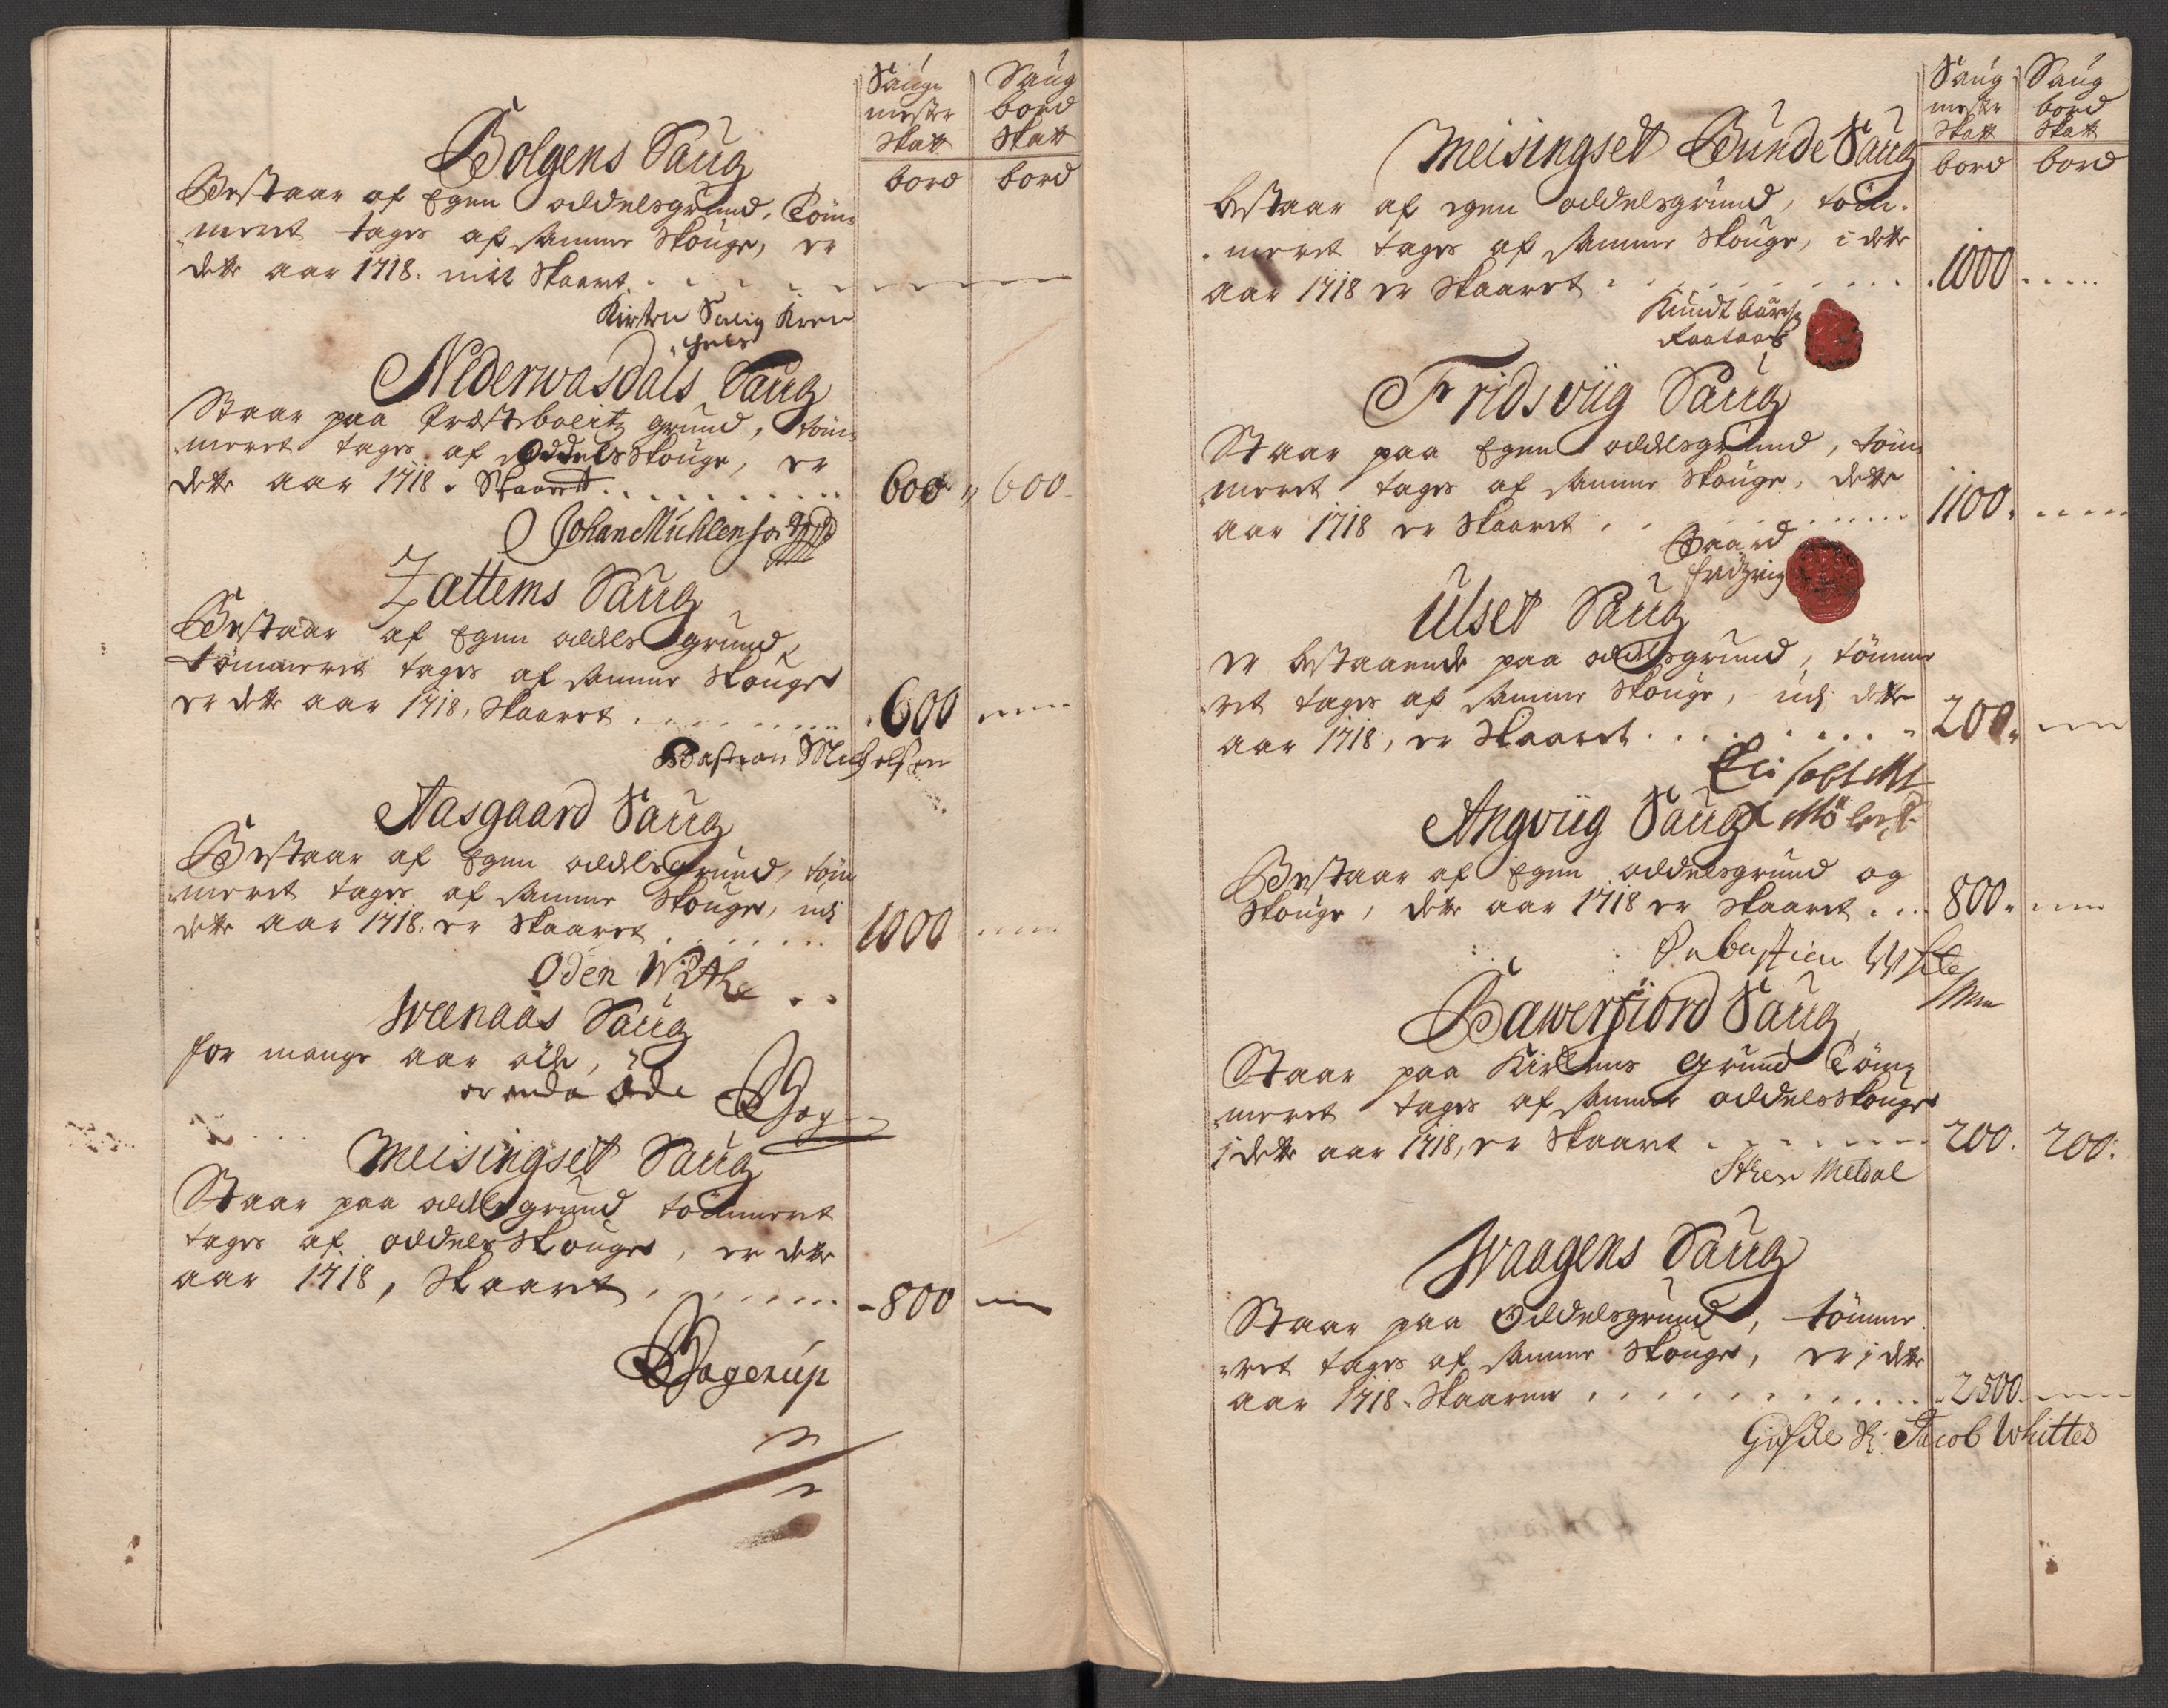 Saug Saug
mester bord
Skatt Skatt
bord bord
Bolgens Saug
Bestaar af Egen oddelsgrund, Töm-
meret tages af samme Skouge, er
dette aar 1718. intet Skaaret
Kirsten Salig
Nederwasdals Saug
Staar paa Præsteboelitz grund, töm-
meret tages af Oddels Skouge, er
dette aar 1718. Skaaret 600 600
Johan Mühlensor
Zættems Saug
Bestaar af Egen oddels grund
tömmeret tages af samme Skouge
er dette aar 1718, Skaaret 600
Bastian Michelsen
Aasgaard Saug
Bestaar af Egen oddels grund, töm
meret tages af samme Skouge, udj
dette aar 1718. er Skaaret 1000
Oden Withe
Wæenaas Saug
for mange aar öde,
er enda öde
Meisingset Saug
Staar paa oddels grund tömmeret
tages af oddels Skouge, er dette
aar 1718, Skaaret 800
Hagerup
Saug Saug
mester bord
Skatt Skatt
bord bord
Meisingset Bunde Saug
bestaar af egen oddelsgrund, töm-
meret tages af samme Skouge, i dette
aar 1718 er Skaaret 1000
Knudt
Fridsviig Saug
Staar paa Egen oddelsgrund, töm
meret tages af samme Skouge, dette
aar 1718 er Skaaret 1100
Baard
fridzvig
Ulset Saug
er bestaaende paa oddelsgrund, tömme
ret tages af samme Skouge, udj dette
aar 1718, er Skaaret 200
Angviig Saug
Bestaar af Egen oddelsgrund og
Skouge, dette aar 1718 er Skaaret 800
Sebastien
Bawerfiord Saug
Staar paa Kirkens Grund Töm-
meret tages af samme oddels Skouge
j dette aar 1718, er Skaaret 200. 200.
Meldal
Waagens Saug
Staar paa Oddelsgrund, tömme
ret tages af samme Skouge, er j dette
aar 1718. Skaaren 2500
Jacob Whittes